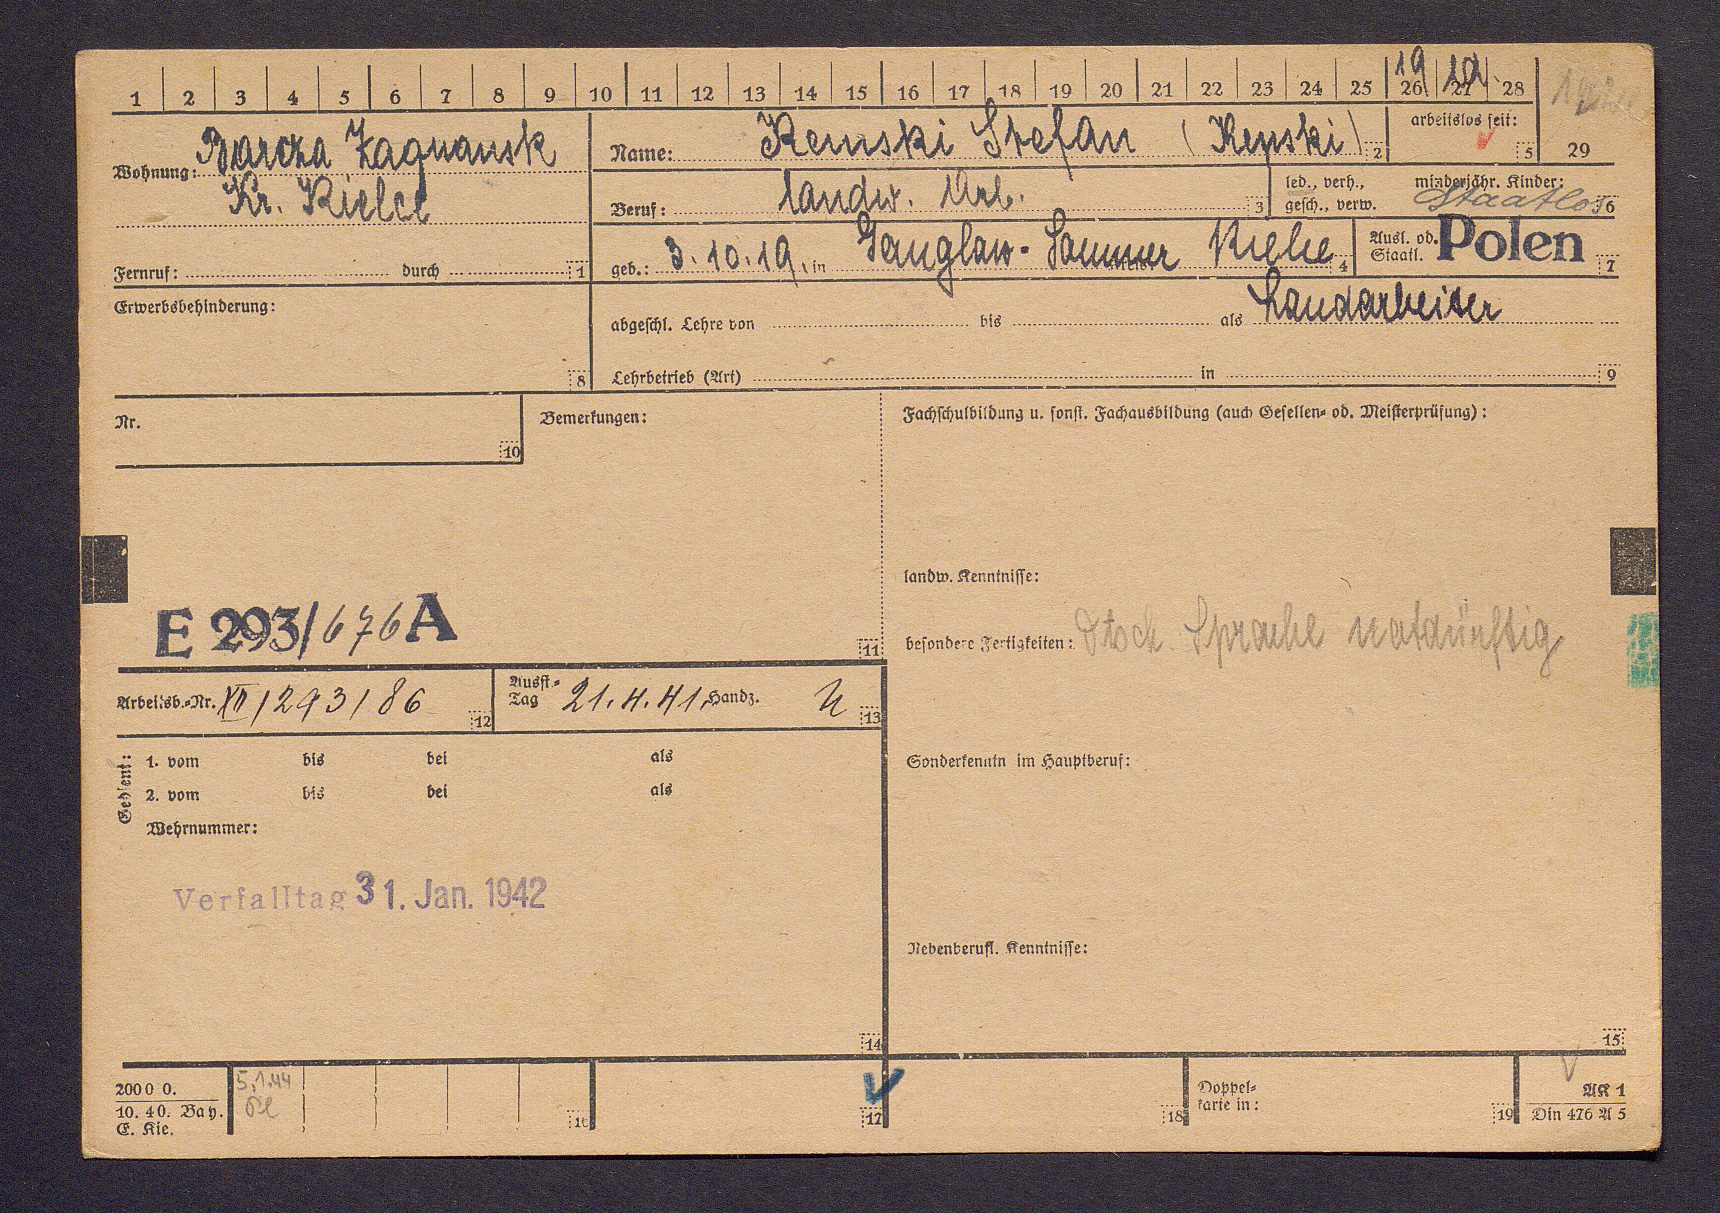 1 2 3 4 5 6 7 8 9 10 11 12 13 14 15 16 17 18 19 20 21 22 23 24 25 26 27 28
19
Wohnung: Barcza Zagnansk
Kr. Kielce
Fernruf: durch 1
Name: Kemski Stefan (Kenski) 2
arbeitslos seit: 5
29
Beruf: landw. Arb. 3
led., verh., gesch., verw.
minderjähr. Kinder: 6
Staatlos
geb.: 3.10.19. in 4
Ausl. od. Staatl. Polen 7
Erwerbsbehinderung: 8
abgeschl. Lehre von bis als Landarbeiter
Lehrbetrieb (Art) in 9
Nr. 10
Bemerkungen:
Fachschulbildung u. sonst. Fachausbildung (auch Gesellen- od. Meisterprüfung):
landw. Kenntnisse:
E 293/676 A
11
besondere Fertigkeiten: Dtsch. Sprache notdürftig
Arbeitsb.-Nr. XII/293/86 12
Ausst.-Tag 21.4.41. Handz. 13
Gedient:
1. vom bis bei als
2. vom bis bei als
Wehrnummer:
Sonderkenntn im Hauptberuf:
Verfalltag 31. Jan. 1942
Nebenberufl. Kenntnisse:
14
15
2000 0.
10. 40. Bay.
E. Kie.
5.1.44
16
17
18
Doppelkarte in: 19
AK 1
Din 476 A 5